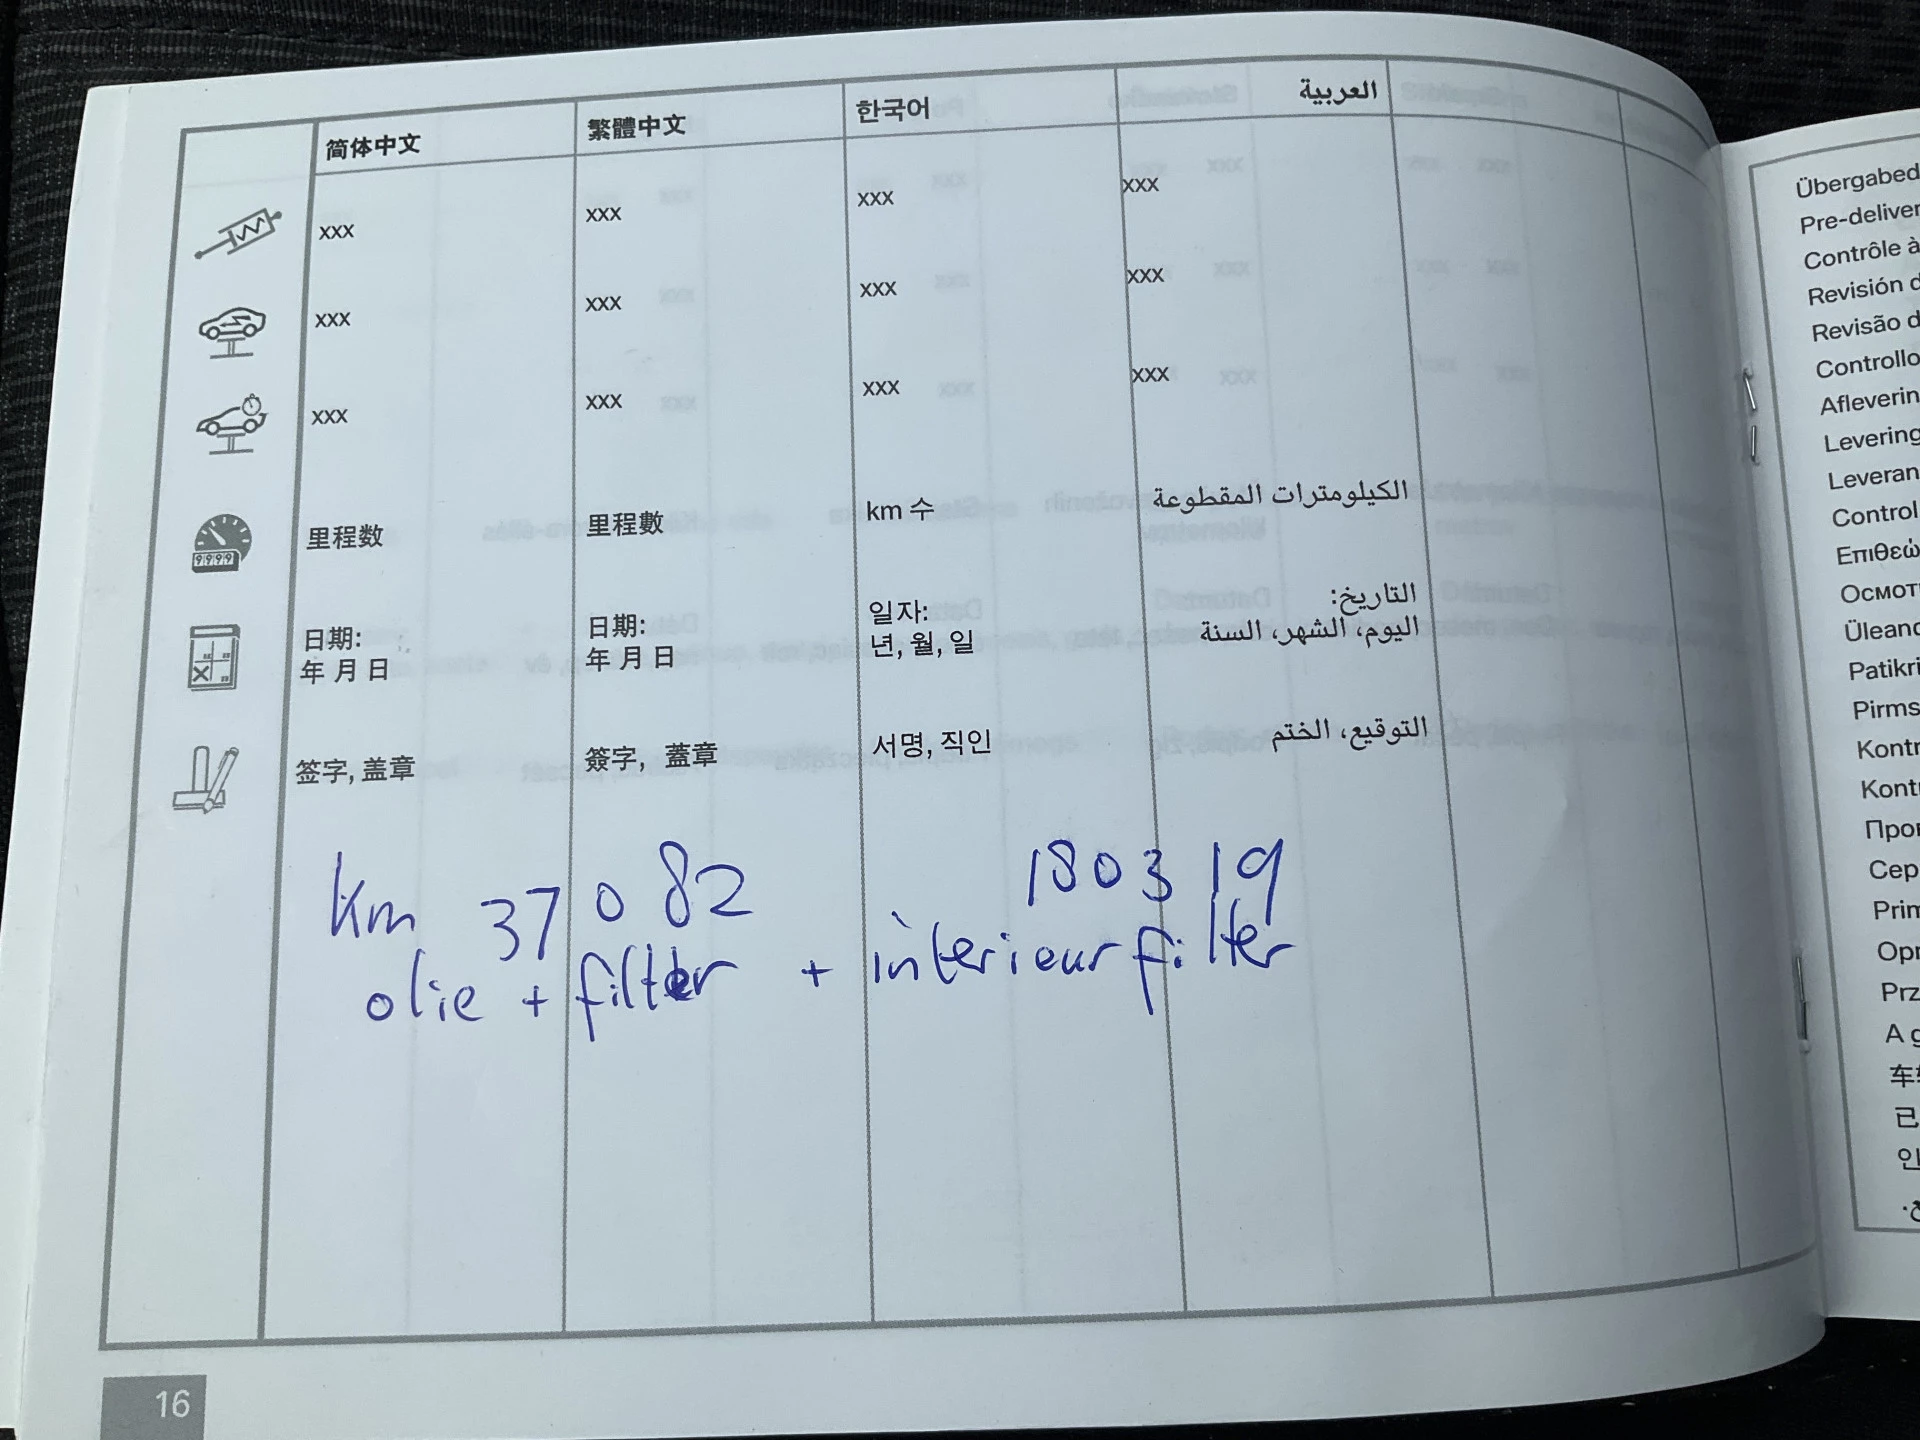 简体中文 繁體中文 한국어 العربية
xxx xxx xxx xxx
xxx xxx xxx xxx
xxx xxx xxx xxx
里程数 里程數 km 수 الكيلومترات المقطوعة
日期: 日期: 일자: التاريخ:
年 月 日 年 月 日 년, 월, 일 اليوم، الشهر، السنة
签字, 盖章 簽字, 蓋章 서명, 직인 التوقيع، الختم
km 37082 180319
olie + filter + interieurfilter
16
Übergabed
Pre-deliver
Contrôle à
Revisión d
Revisão d
Controllo
Afleverin
Levering
Leveran
Control
Επιθεώ
Осмот
Üleand
Patikri
Pirms
Kontr
Kont
Про
Сер
Prim
Opr
Prz
A g
车
已